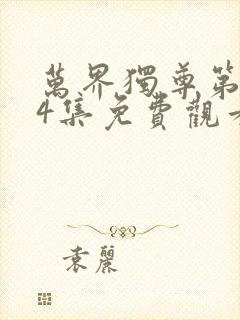 萬界獨尊第
4集免費觀看
袁麗